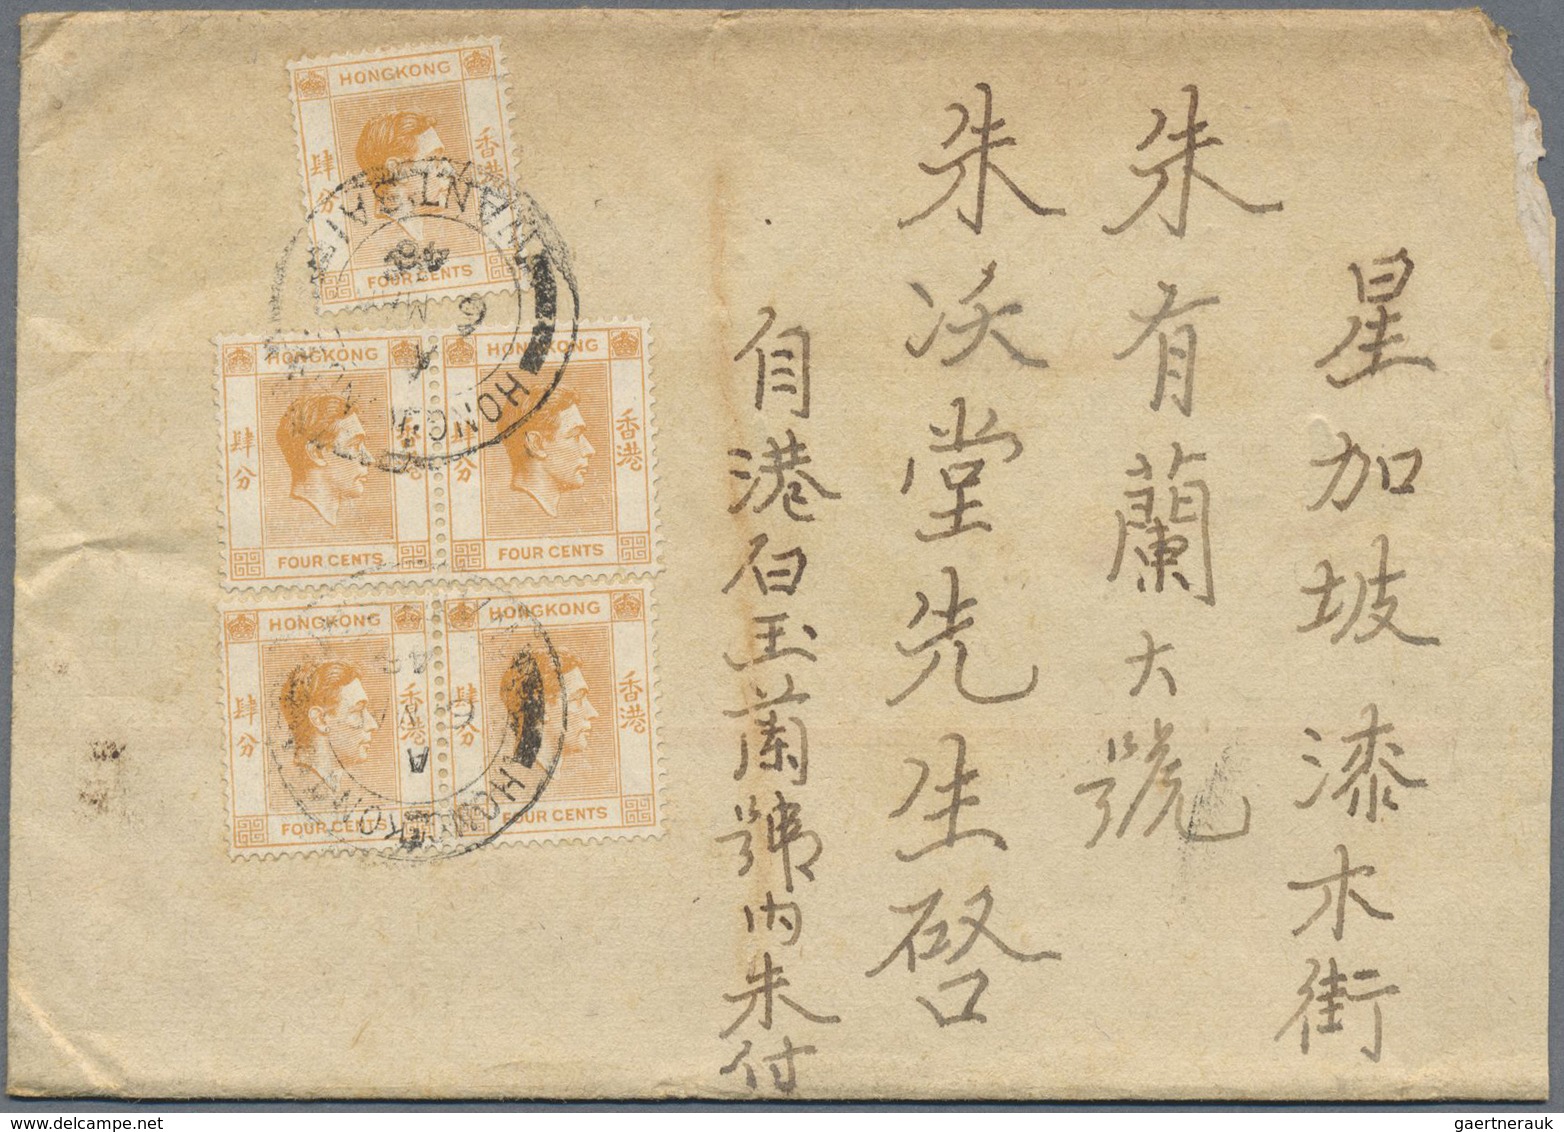 星加坡漆木街
朱有蘭大號
朱沃堂先生啓
自港白玉蘭號内朱付
HONGKONG
香港
肆分
FOUR CENTS
HONGKONG
香港
肆分
FOUR CENTS
HONGKONG
香港
肆分
FOUR CENTS
HONGKONG
香港
肆分
FOUR CENTS
HONGKONG
香港
肆分
FOUR CENTS
HONG KONG
A
48
HONG KONG
A
gaertnerauk